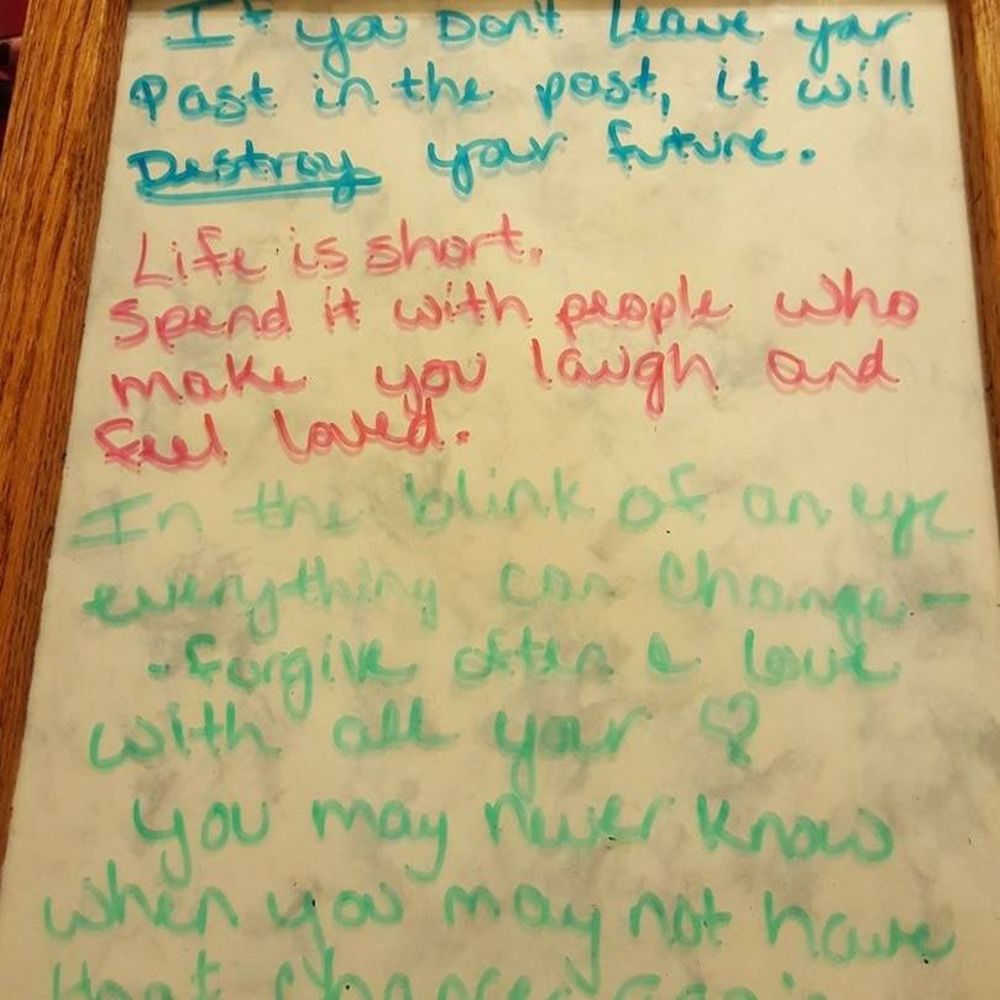 If you Don't leave your
Past in the past, it will
Destroy your future.
Life is short.
Spend it with people who
make you laugh and
feel loved.
In the blink of an eye
everything can change-
-forgive often & love
with all your ♡
you may never know
when you may not have
that chance again